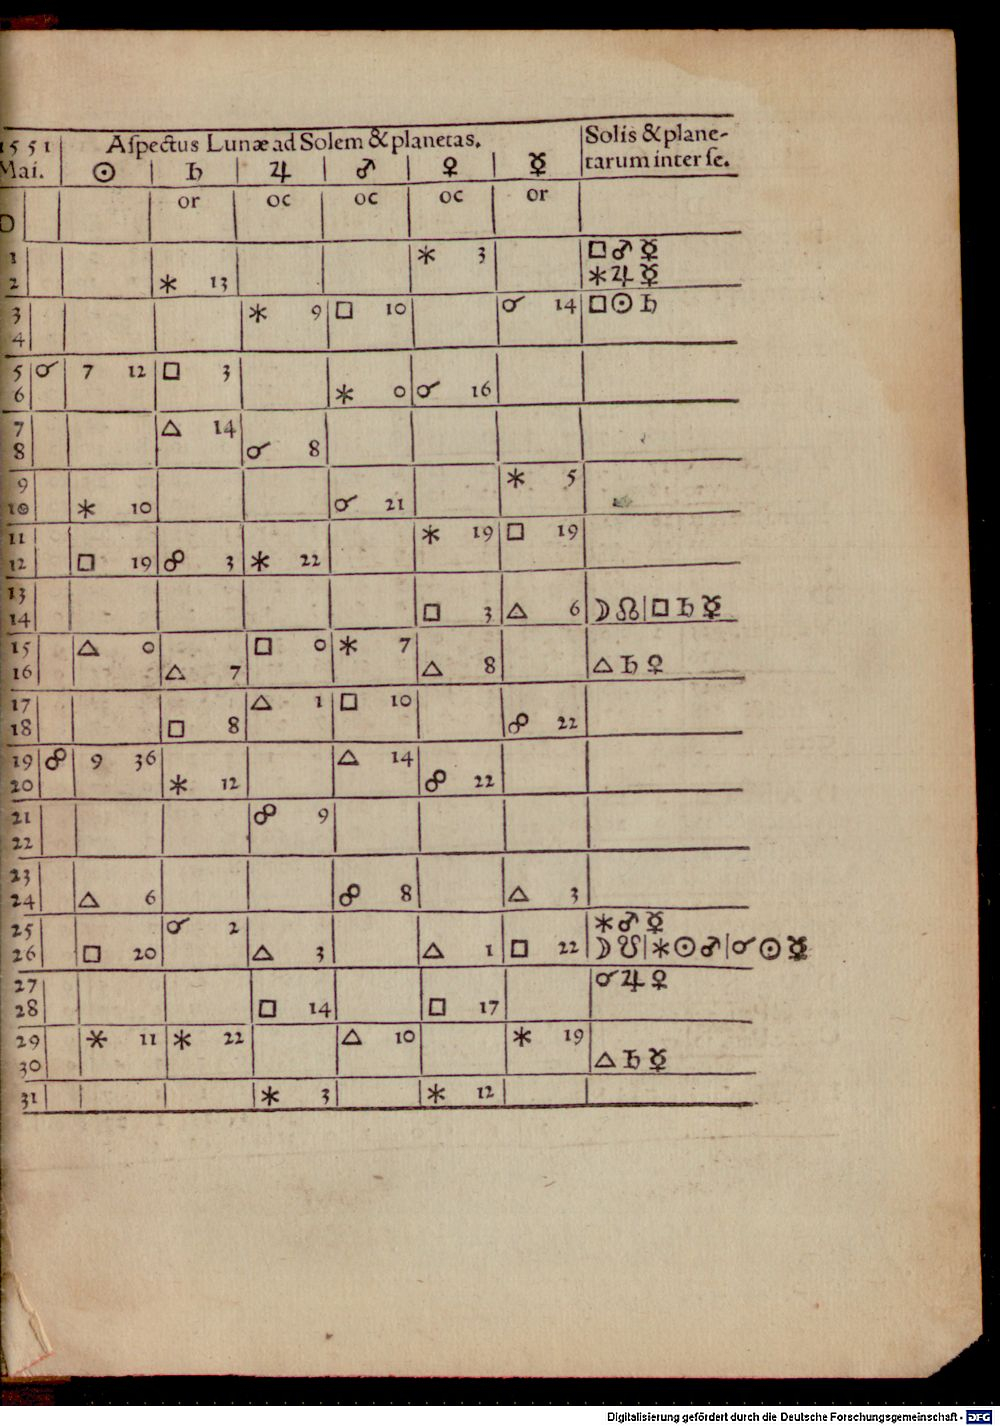 1551 Aſpectus Lunæ ad Solem & planetas. Solis & plane-
Mai. ☉ ♄ ♃ ♂ ♀ ☿ tarum inter ſe.
or oc oc oc or
1 ⚹ 3 □ ♂ ☿
2 ⚹ 13 ⚹ ♃ ☿
3 ⚹ 9 □ 10 ☌ 14 □ ☉ ♄
4
5 ☌ 7 12 □ 3
6 ⚹ 0 ☌ 16
7 △ 14
8 ☌ 8
9 ⚹ 5
10 ⚹ 10 ☌ 21
11 ⚹ 19 □ 19
12 □ 19 ☍ 3 ⚹ 22
13
14 □ 3 △ 6 ☽ ☊ | □ ♄ ☿
15 △ 0 □ 0 ⚹ 7
16 △ 7 △ 8 △ ♄ ♀
17 △ 1 □ 10
18 □ 8 ☍ 22
19 ☍ 9 36 △ 14
20 ⚹ 12 ☍ 22
21 ☍ 9
22
23
24 △ 6 ☍ 8 △ 3
25 ☌ 2 ⚹ ♂ ☿
26 □ 20 △ 3 △ 1 □ 22 ☽ ☋ | ⚹ ☉ ♂ | ☌ ☉ ☿
27 ☌ ♃ ♀
28 □ 14 □ 17
29 ⚹ 11 ⚹ 22 △ 10 ⚹ 19
30 △ ♄ ☿
31 ⚹ 3 ⚹ 12
Digitalisierung gefördert durch die Deutsche Forschungsgemeinschaft - DFG